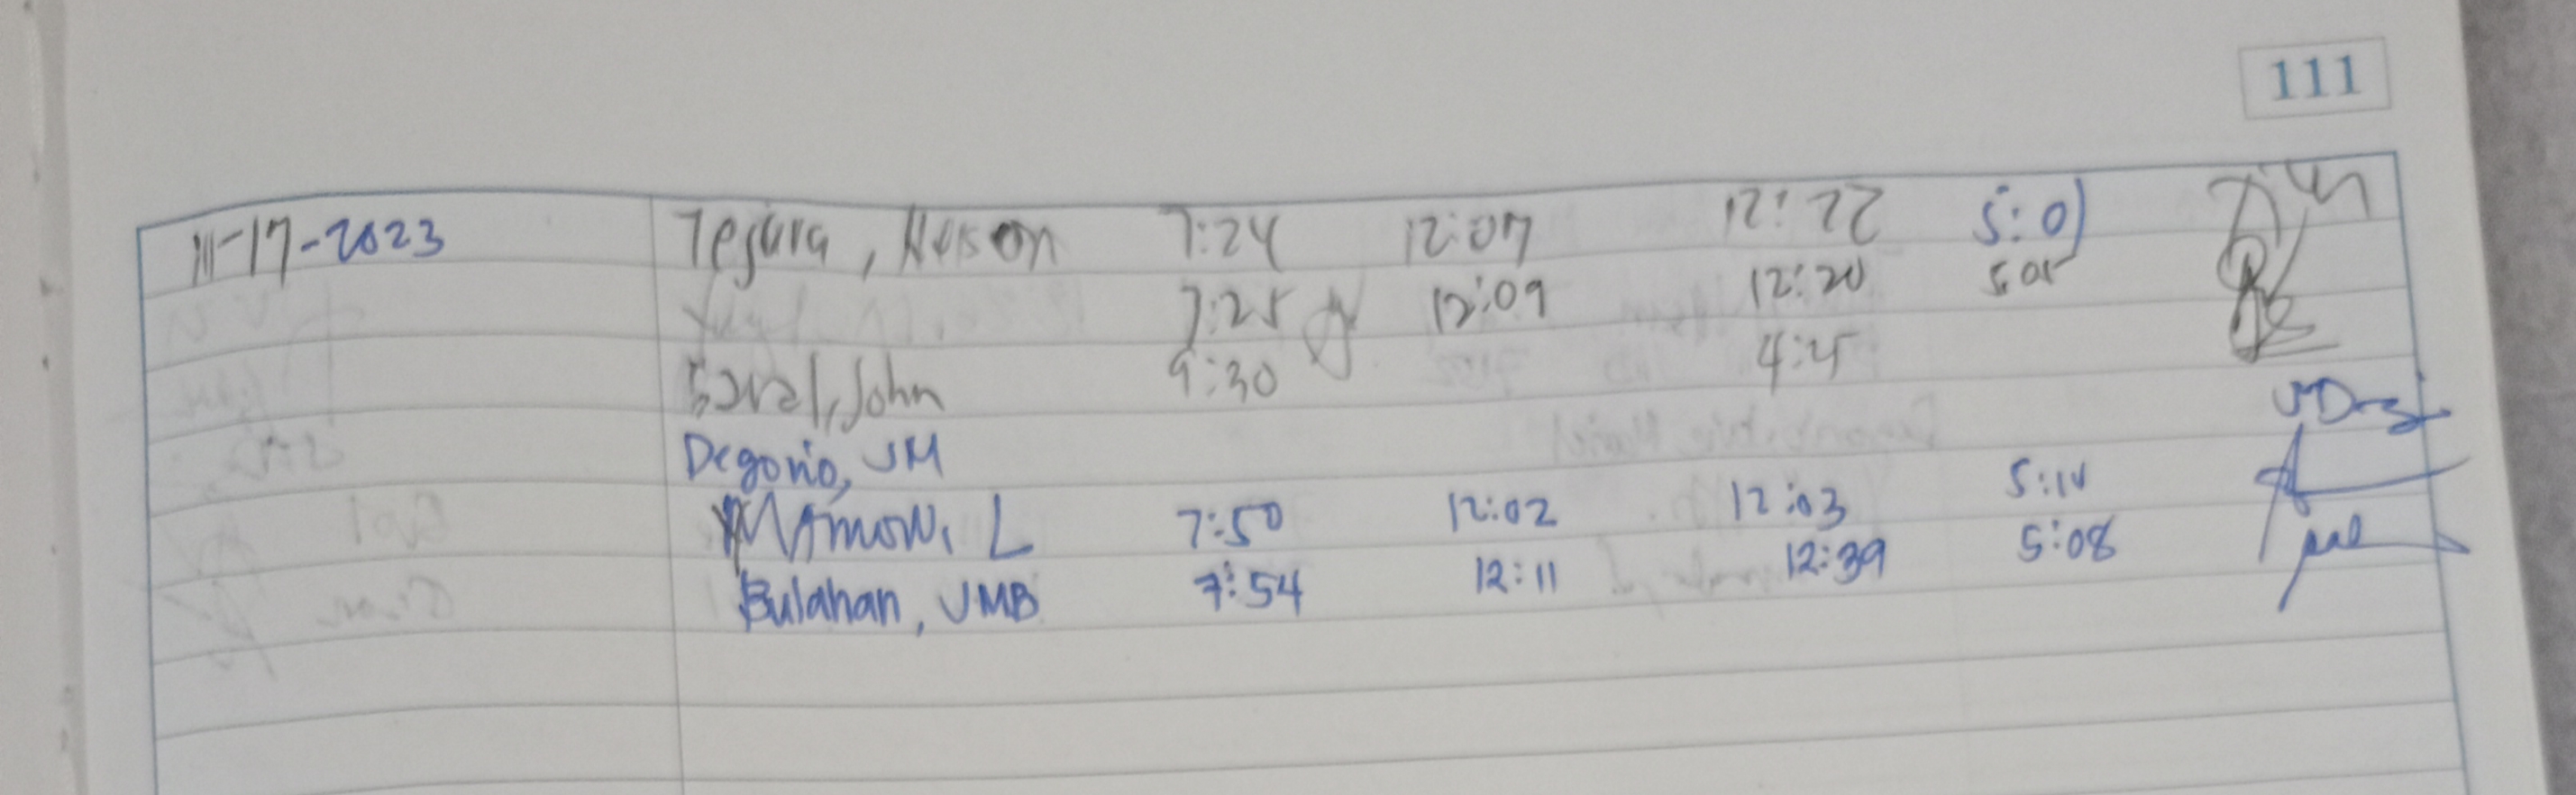 111
11-17-2023 Tejura, Nelson 7:24 12:07 12:22 5:01
7:25 12:09 12:20 5 05
Saral, John 9:30 4:25
Degorio, JM
Mamow, L 7:50 12:02 12:03 5:10
Bulahan, JMB 7:54 12:11 12:39 5:08